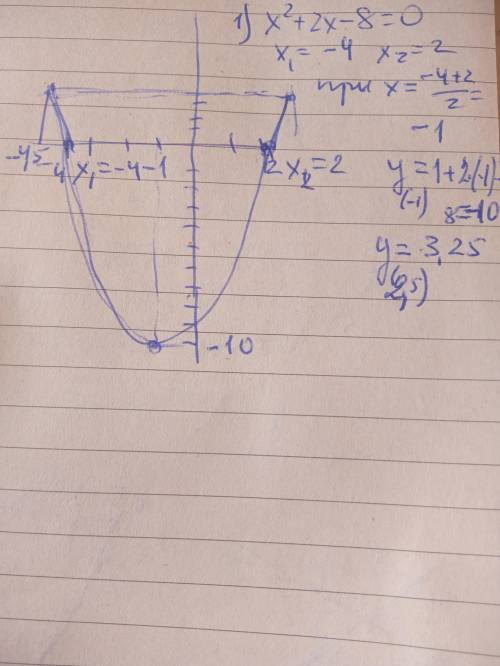 1) x²+2x-8=0
x₁=-4 x₂=2
при x=-4+2/2=
-1
y=1+2·(-1)-
(-1) 8=-10
y=3,25
(2,5)
-4,5 -4 x₁=-4 -1 2 x₂=2
-10